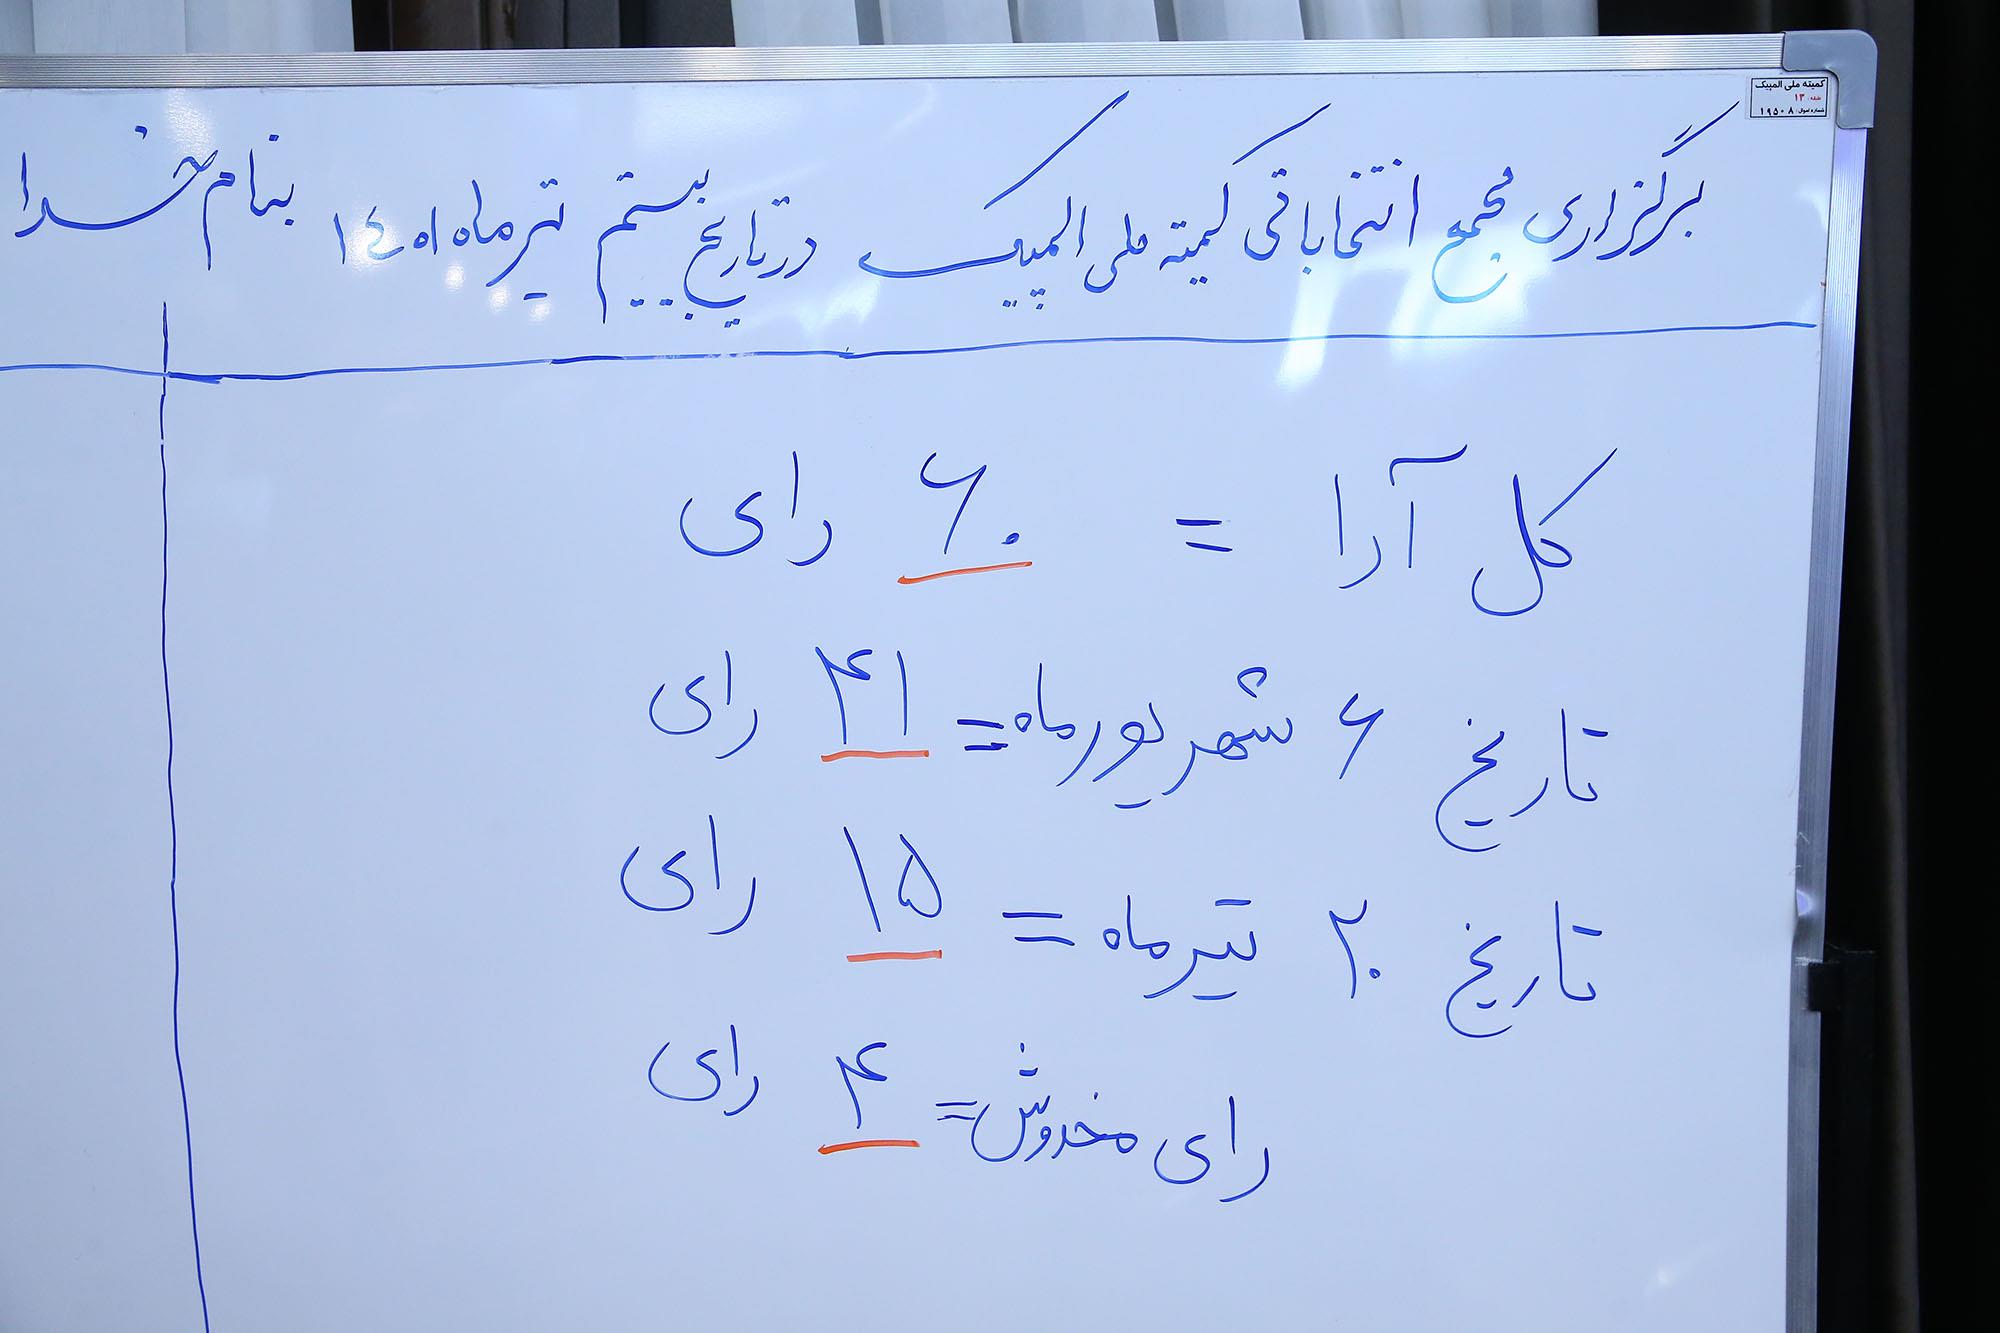 بنام خدا
برگزاری مجمع انتخاباتی کمیته ملی المپیک در تاریخ بیستم تیر ماه ۱٤۰۱
کل آرا = ۶۰ رای
تاریخ ۶ شهریور ماه = ۴۱ رای
تاریخ ۲۰ تیر ماه = ۱۵ رای
رای مخدوش = ۴ رای
کمیته ملی المپیک
طبقه: ۱۳
شماره اموال: ۱۹۵۰۸